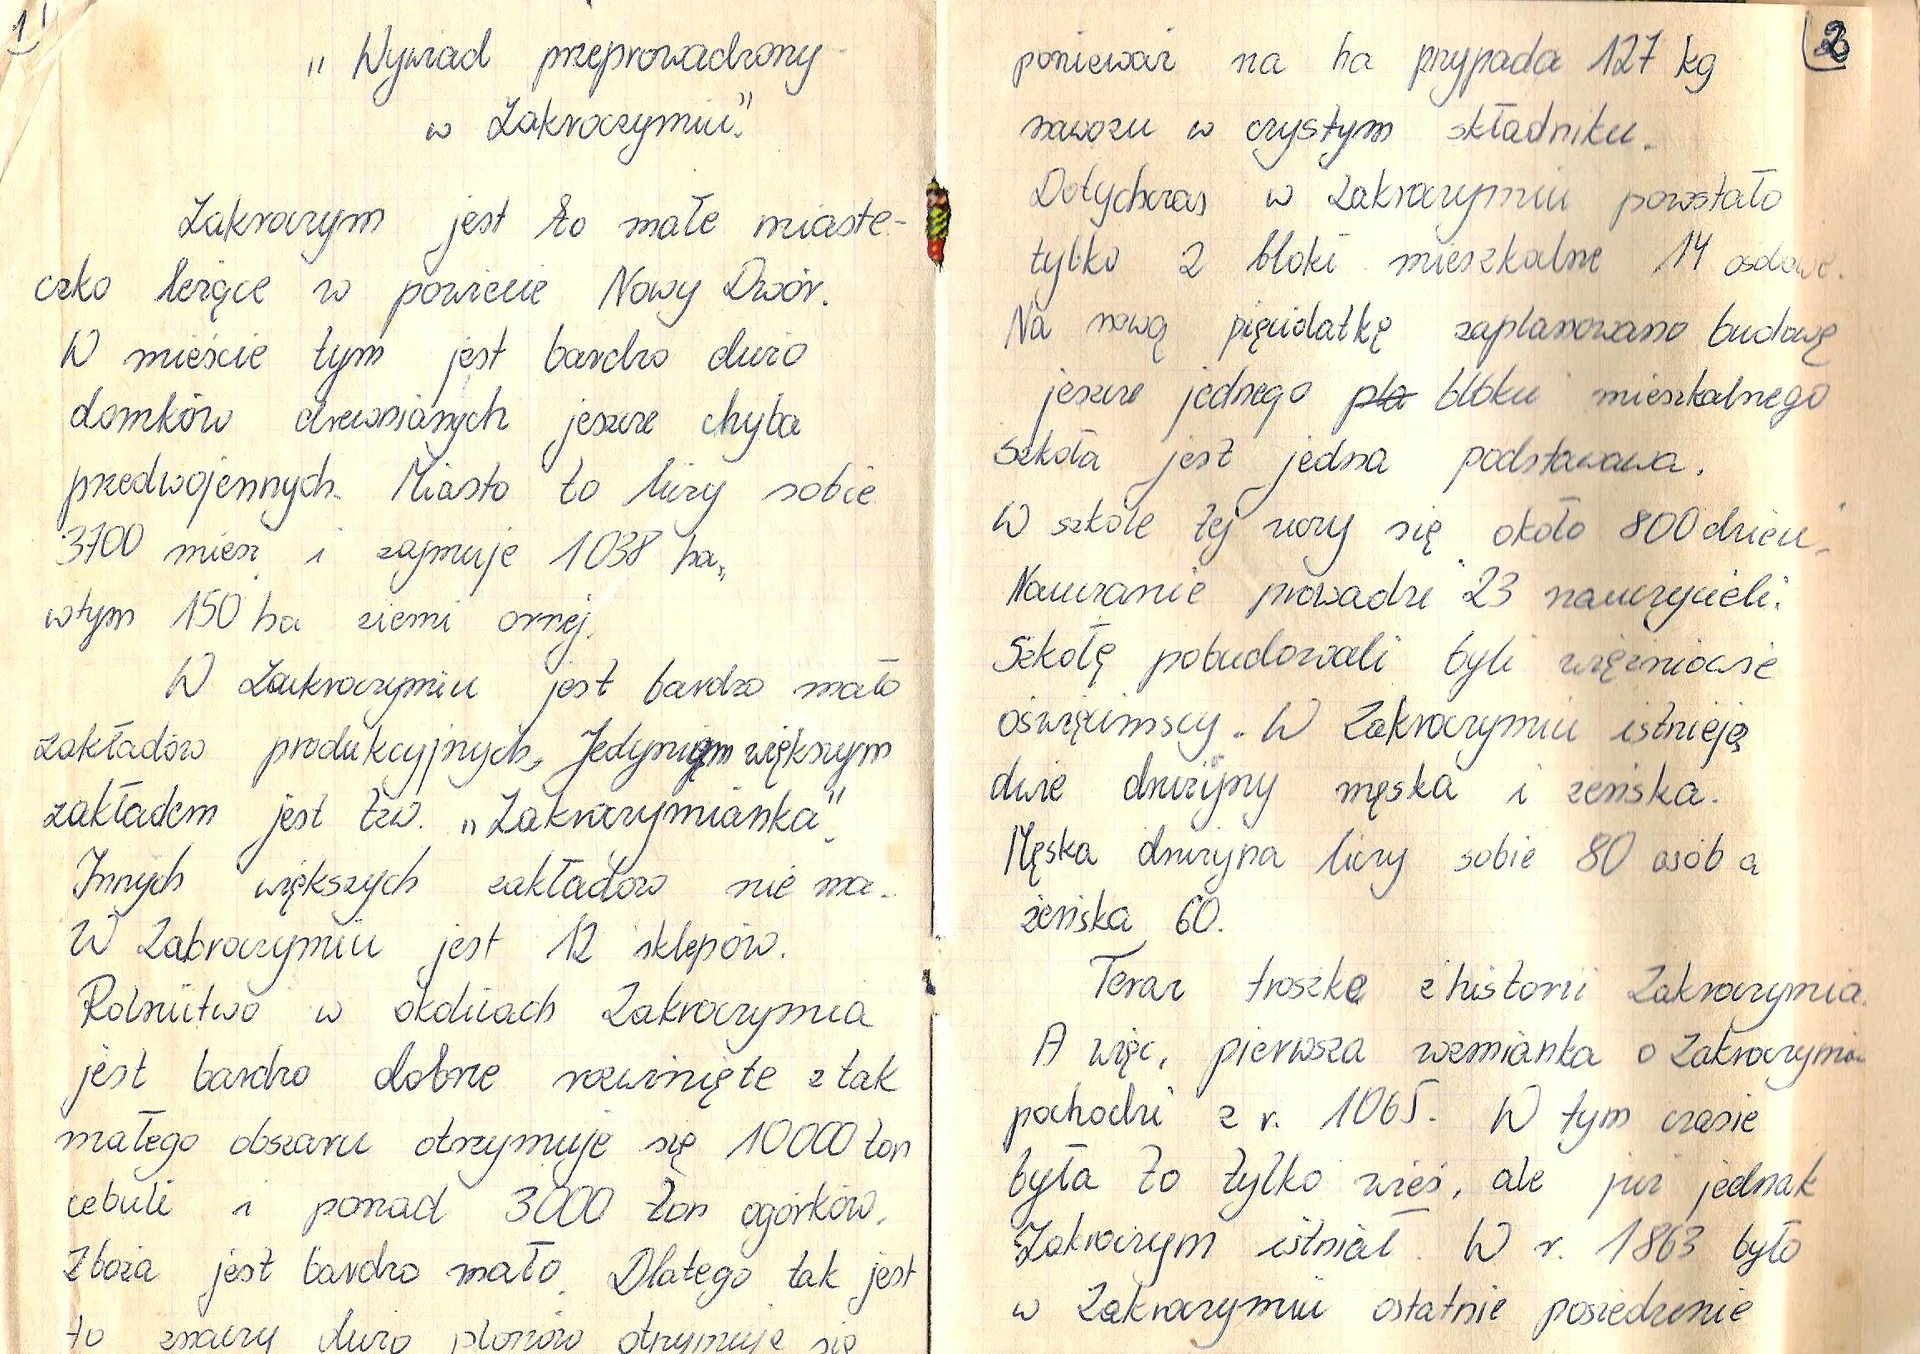 1
„Wywiad przeprowadzony
w Zakroczymiu."
Zakroczym jest to małe miaste-
czko leżące w powiecie Nowy Dwór.
W mieście tym jest bardzo dużo
domków drewnianych jeszcze chyba
przedwojennych. Miasto to liczy sobie
3700 miesz i zajmuje 1038 ha,
wtym 150 ha ziemi ornej.
W Zakroczymiu jest bardzo mało
zakładów produkcyjnych, Jedynym większym
zakładem jest tzw. „Zakroczymianka".
Innych większych zakładów nie ma.
W Zakroczymiu jest 12 sklepów.
Rolnictwo w okolicach Zakroczymia
jest bardzo dobrze rozwinięte z tak
małego obszaru otrzymuje się 10000 ton
cebuli i ponad 3000 ton ogórków.
Zboża jest bardzo mało. Dlatego tak jest
to znaczy dużo plonów otrzymuje się
2
ponieważ na ha przypada 127 kg
nawozu w czystym składniku.
Dotychczas w Zakroczymiu powstało
tylko 2 bloki mieszkalne 14 osobowe.
Na nową pięciolatkę zaplanowano budowę
jeszcze jednego pla bloku mieszkalnego
Szkoła jest jedna podstawowa.
W szkole tej uczy się około 800 dzieci.
Nauczanie prowadzi 23 nauczycieli.
Szkołę pobudowali byli więźniowie
oświęcimscy. W Zakroczymiu istnieją
dwie drużyny męska i żeńska.
Męska drużyna liczy sobie 80 osób a
żeńska 60.
Teraz troszkę z historii Zakroczymia.
A więc, pierwsza wzmianka o Zakroczymiu
pochodzi z r. 1065. W tym czasie
była to tylko wieś, ale już jednak
Zakroczym istniał. W r. 1863 było
w Zakroczymiu ostatnie posiedzenie